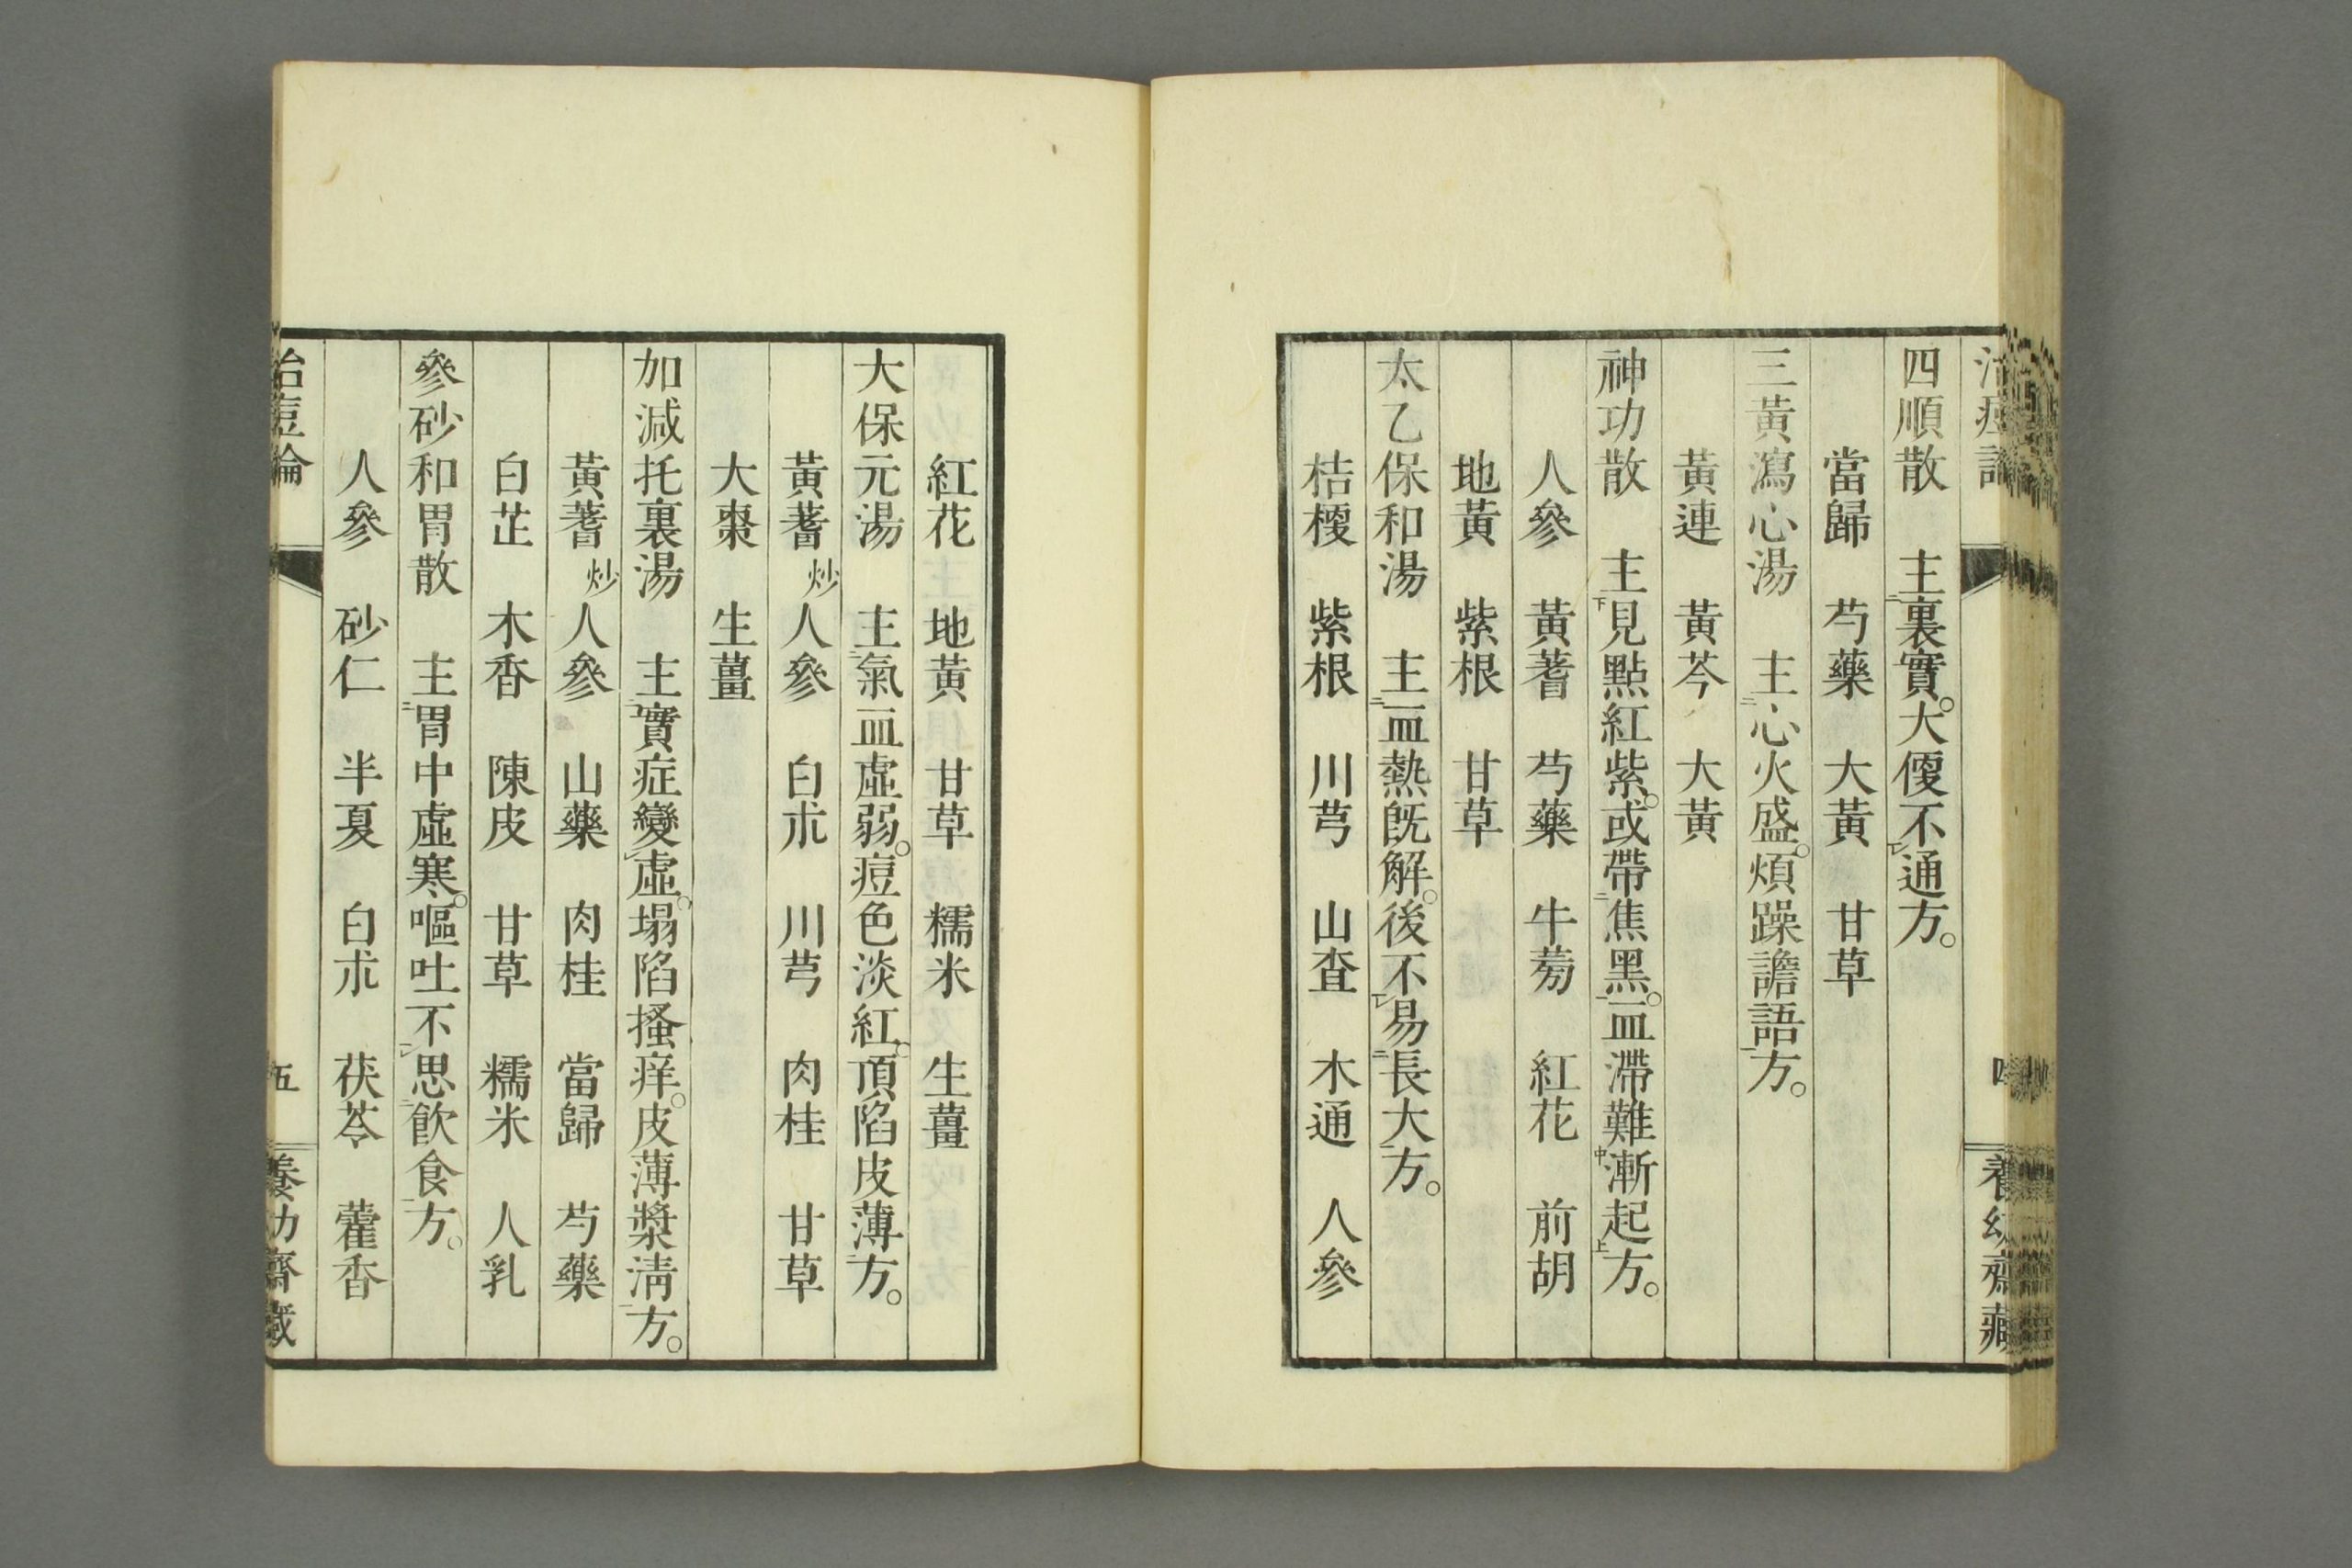 四順散　主裏實。大便不通方。
當歸　芍藥　大黃　甘草
三黃瀉心湯　主心火盛。煩躁譫語方。
黃連　黃芩　大黃
神功散　主見點紅紫。或帶焦黑。血滯難漸起方。
人參　黃蓍　芍藥　牛蒡　紅花　前胡
地黃　紫根　甘草
太乙保和湯　主血熱既解。後不易長大方。
桔梗　紫根　川芎　山査　木通　人參
紅花　地黃　甘草　糯米　生薑
大保元湯　主氣血虛弱。痘色淡紅。頂陷皮薄方。
黃蓍炒　人參　白朮　川芎　肉桂　甘草
大棗　生薑
加減托裏湯　主實症變虛。塌陷搔痒。皮薄漿淸方。
黃蓍炒　人參　山藥　肉桂　當歸　芍藥
白芷　木香　陳皮　甘草　糯米　人乳
參砂和胃散　主胃中虛寒。嘔吐不思飮食方。
人參　砂仁　半夏　白朮　茯苓　藿香
治痘論　五　養幼齋藏